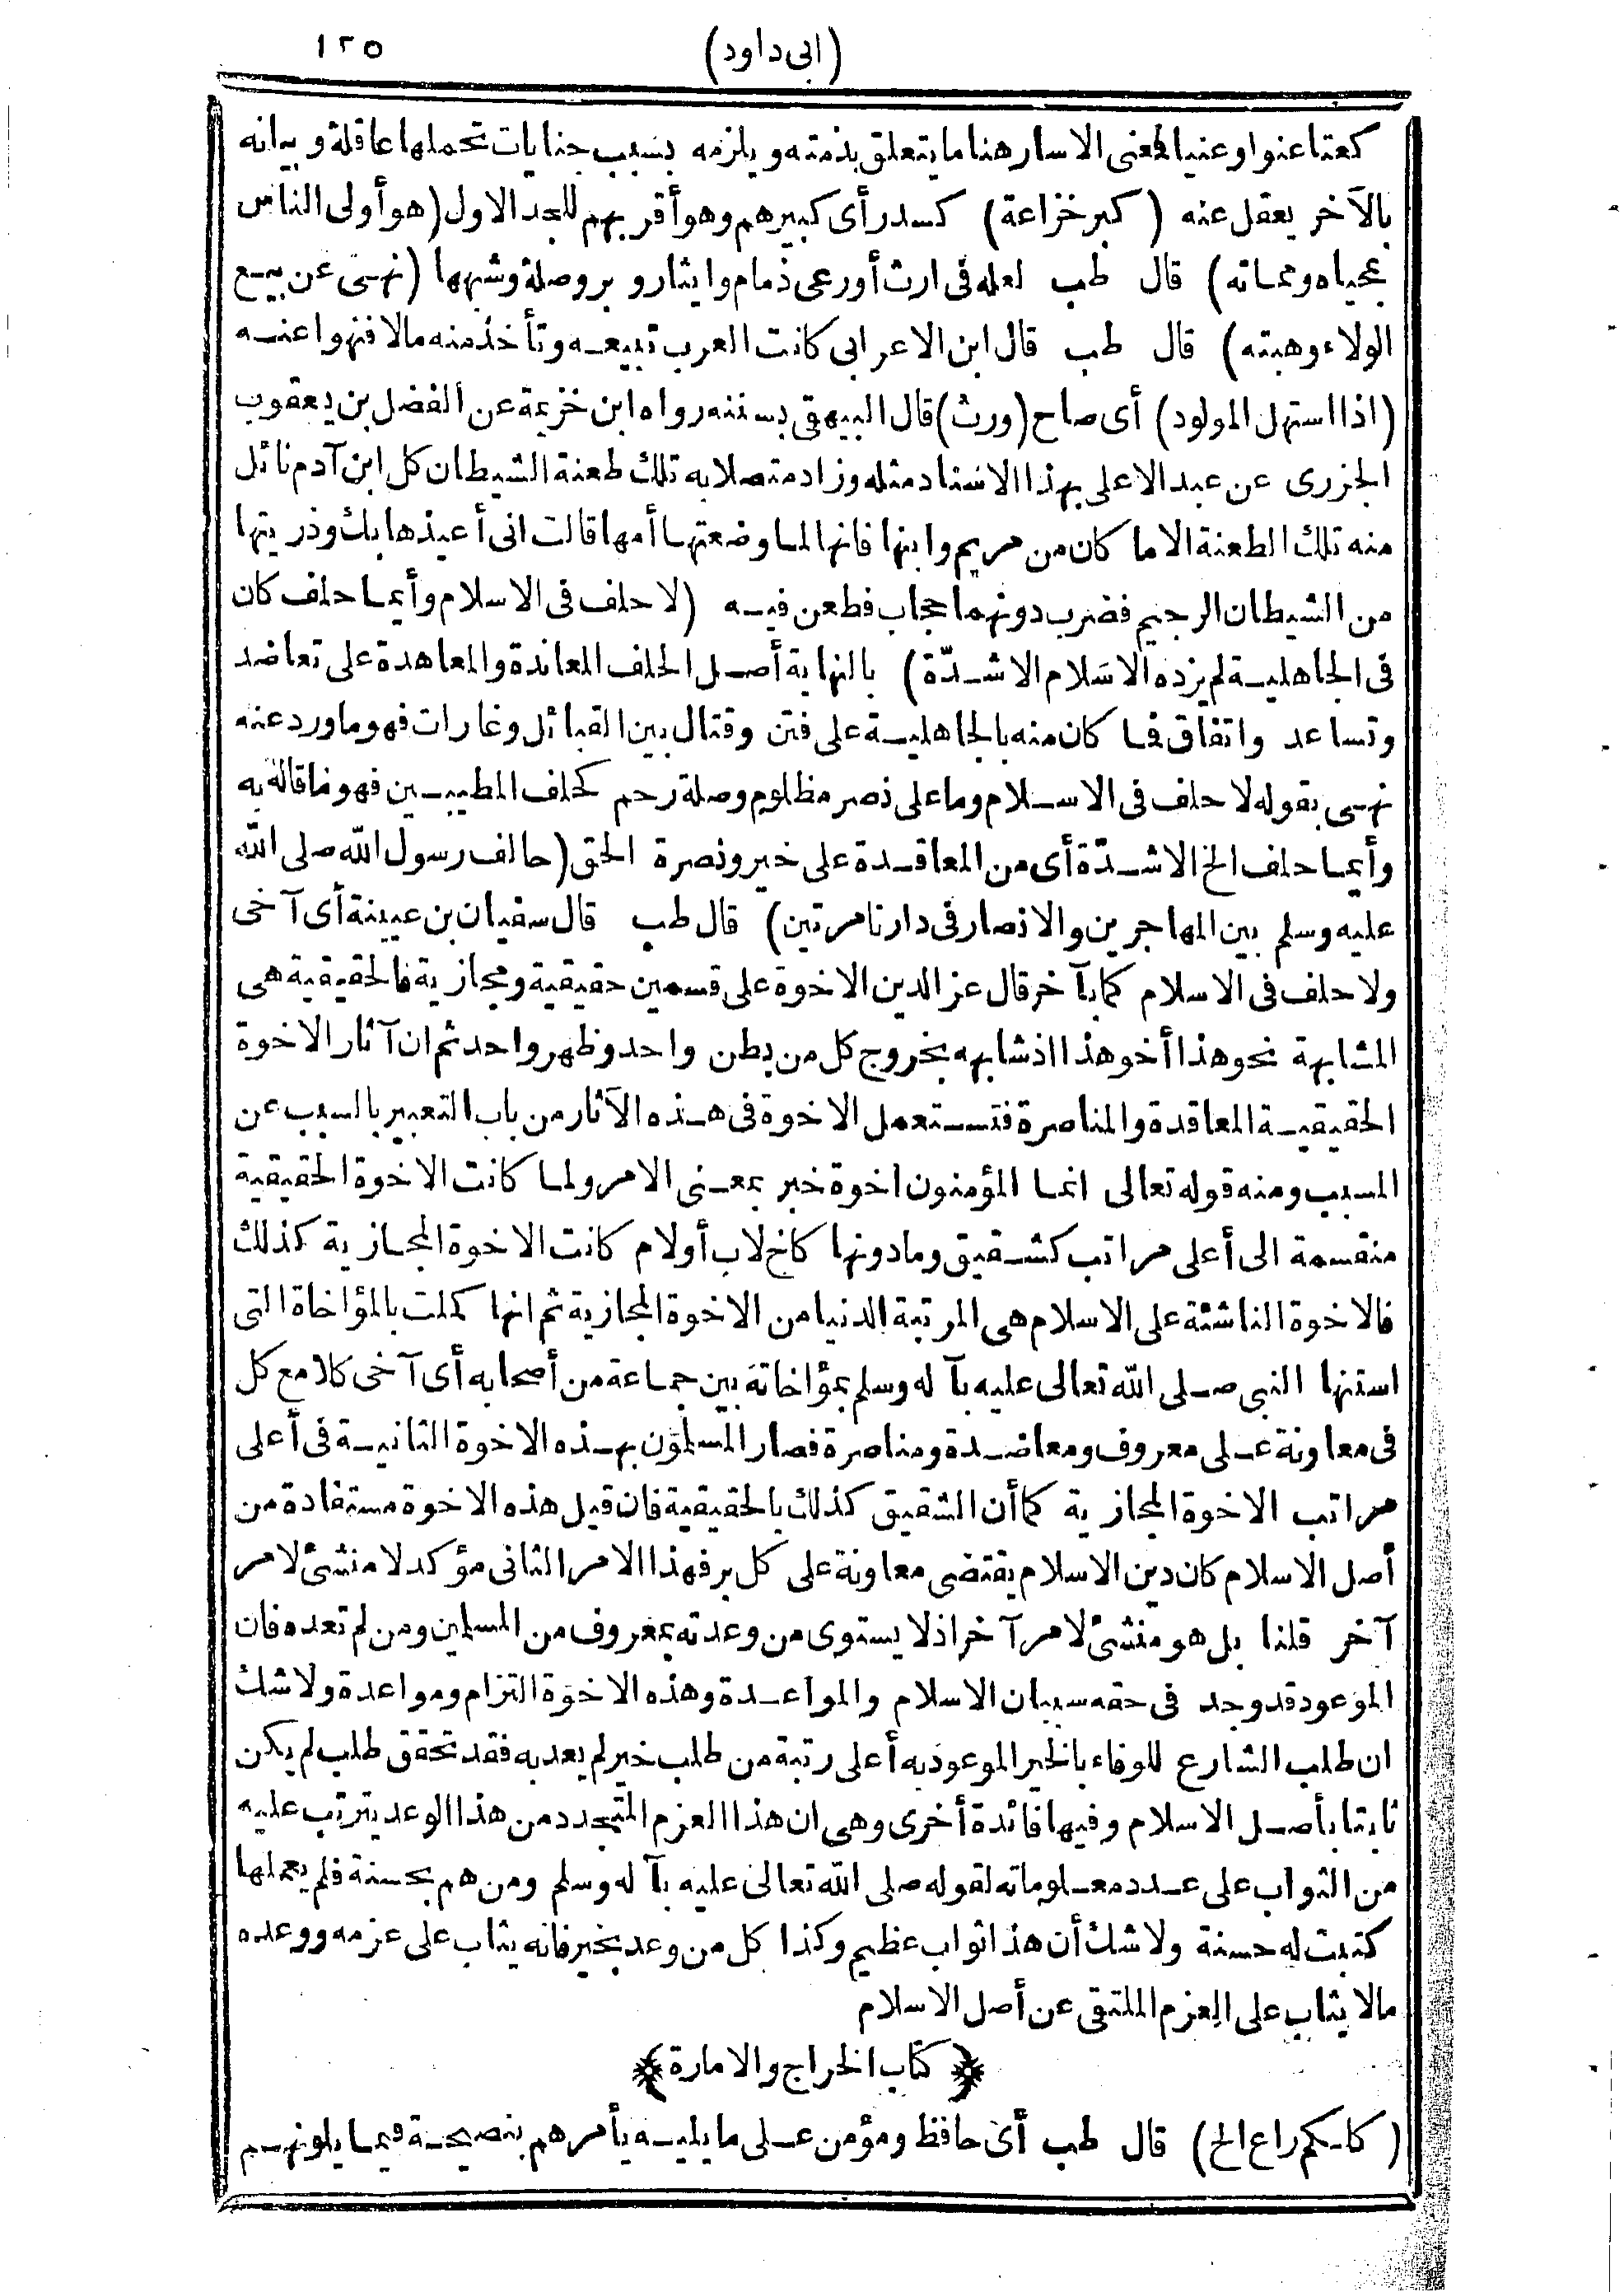 (ابى داود) ١٢٥
كعتا عنوا وعنيا فمعنى الاسار هنا ما يتعلق بذمته ويلزمه بسبب جنايات تحملها عاقلة وبيانه
بالآخر يعقل عنه (كبر خزاعة) كسدر أى كبيرهم وهو أقربهم للجد الاول (هو أولى الناس
بمحياه ومماته) قال طب لعله فى ارث أو رعى ذمام وايثار وبر وصلة وشبهها (نهسى عن بيع
الولاء وهبته) قال طب قال ابن الاعرابى كانت العرب تبيعه وتأخذ منه مالا فنهوا عنه
(اذا استهل المولود) أى صاح (ورث) قال البيهقى بسننه رواه ابن خزيمة عن الفضل بن يعقوب
الجزرى عن عبد الاعلى بهذا الاسناد مثله وزاد متصلا به تلك طعنة الشيطان كل ابن آدم نائل
منه تلك الطعنة الا ما كان من مريم وابنها فانها لما وضعتها أمها قالت انى أعيذها بك وذريتها
من الشيطان الرجيم فضرب دونهما حجاب فطعن فيه (لا حلف فى الاسلام وأيما حلف كان
فى الجاهلية لم يزده الاسلام الا شدّة) بالنهاية أصل الحلف المعاقدة والمعاهدة على تعاضد
وتساعد واتفاق فما كان منه بالجاهلية على فتن وقتال بين القبائل وغارات فهو ما ورد عنه
نهسى بقوله لا حلف فى الاسلام وما على نصر مظلوم وصلة رحم كحلف المطيبين فهو ما قال به
وأيما حلف الخ الا شدّة أى من المعاقدة على خير ونصرة الحق (حالف رسول الله صلى الله
عليه وسلم بين المهاجرين والانصار فى دارنا مرتين) قال طب قال سفيان بن عيينة أى آخى
ولا حلف فى الاسلام كما بآخر قال عز الدين الاخوة على قسمين حقيقية ومجازية فالحقيقية هى
المشابهة نحو هذا أخو هذا اذ شابهه بخروج كل من بطن واحد وظهر واحد ثم ان آثار الاخوة
الحقيقية المعاقدة والمناصرة فتستعمل الاخوة فى هذه الآثار من باب التعبير بالسبب عن
المسبب ومنه قوله تعالى انما المؤمنون اخوة خبر بمعنى الامر ولما كانت الاخوة الحقيقية
منقسمة الى أعلى مراتب كشقيق وما دونها كاخ لاب أو لام كانت الاخوة المجازية كذلك
فالاخوة الناشئة على الاسلام هى المرتبة الدنيا من الاخوة المجازية ثم انها كملت بالمؤاخاة التى
استنها النبى صلى الله تعالى عليه بآله وسلم بمؤاخاته بين جماعة من أصحابه أى آخى كلا مع كل
فى معاونة على معروف ومعاضدة ومناصرة فصار المسلمون بهذه الاخوة الثانية فى أعلى
مراتب الاخوة المجازية كما أن الشقيق كذلك بالحقيقية فان قيل هذه الاخوة مستفادة من
أصل الاسلام كان دين الاسلام يقتضى معاونة على كل بر فهذا الامر الثانى مؤكد لا منشئ لامر
آخر قلنا بل هو منشئ لامر آخر اذ لا يستوى من وعدته بمعروف من المسلمين ومن لم تعده فان
الموعود قد وجد فى حقه سببان الاسلام والمواعدة وهذه الاخوة التزام ومواعدة ولا شك
ان طلب الشارع للوفاء بالخير الموعود به أعلى رتبة من طلب خير لم يعد به فقد تحقق طلب لم يكن
ثابتا بأصل الاسلام وفيها فائدة أخرى وهى ان هذا العزم المتجدد من هذا الوعد يترتب عليه
من الثواب على عدد معلوماته لقوله صلى الله تعالى عليه بآله وسلم ومن هم بحسنة فلم يعملها
كتبت له حسنة ولا شك أن هذا ثواب عظيم وكذا كل من وعد بخير فانه يثاب على عزمه ووعده
مالا يثاب على العزم الملتقى عن أصل الاسلام
﴿كتاب الخراج والامارة﴾
(كلكم راع الخ) قال طب أى حافظ ومؤمن على ما يليه يأمرهم بنصيحة فيما يلونهم